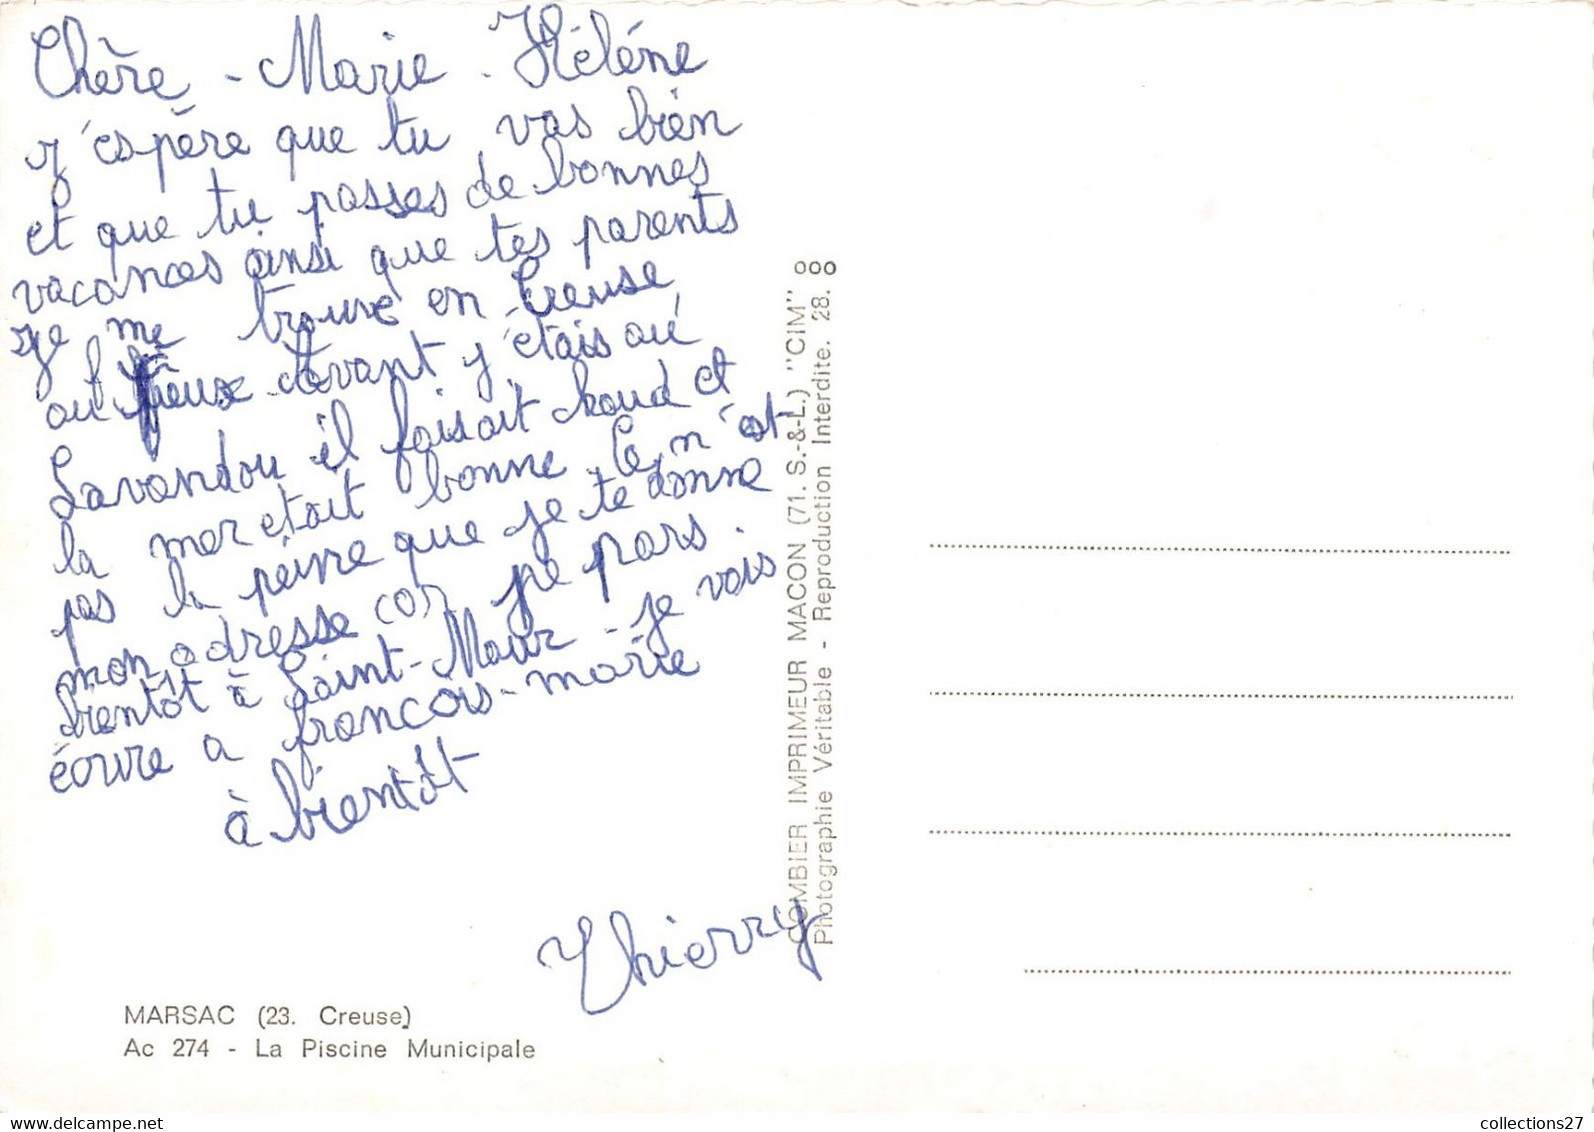 Chère - Marie - Hélène
j'espère que tu vas bien
et que tu passes de bonnes
vacances ainsi que tes parents
je me trouve en Creuse
au avant j'étais au
Lavandou il faisait chaud et
la mer etait bonne. Ce n'est
pas la peine que je te donne
mon adresse car je pars
bientôt à Saint-Maur - je vais
écrire a françois-marie
à bientôt
Thierry
MARSAC (23. Creuse)
Ac 274 - La Piscine Municipale
COMBIER IMPRIMEUR MACON (71. S.-&-L.) "CIM"
Photographie Véritable - Reproduction Interdite. 28.
www.delcampe.net
collections27